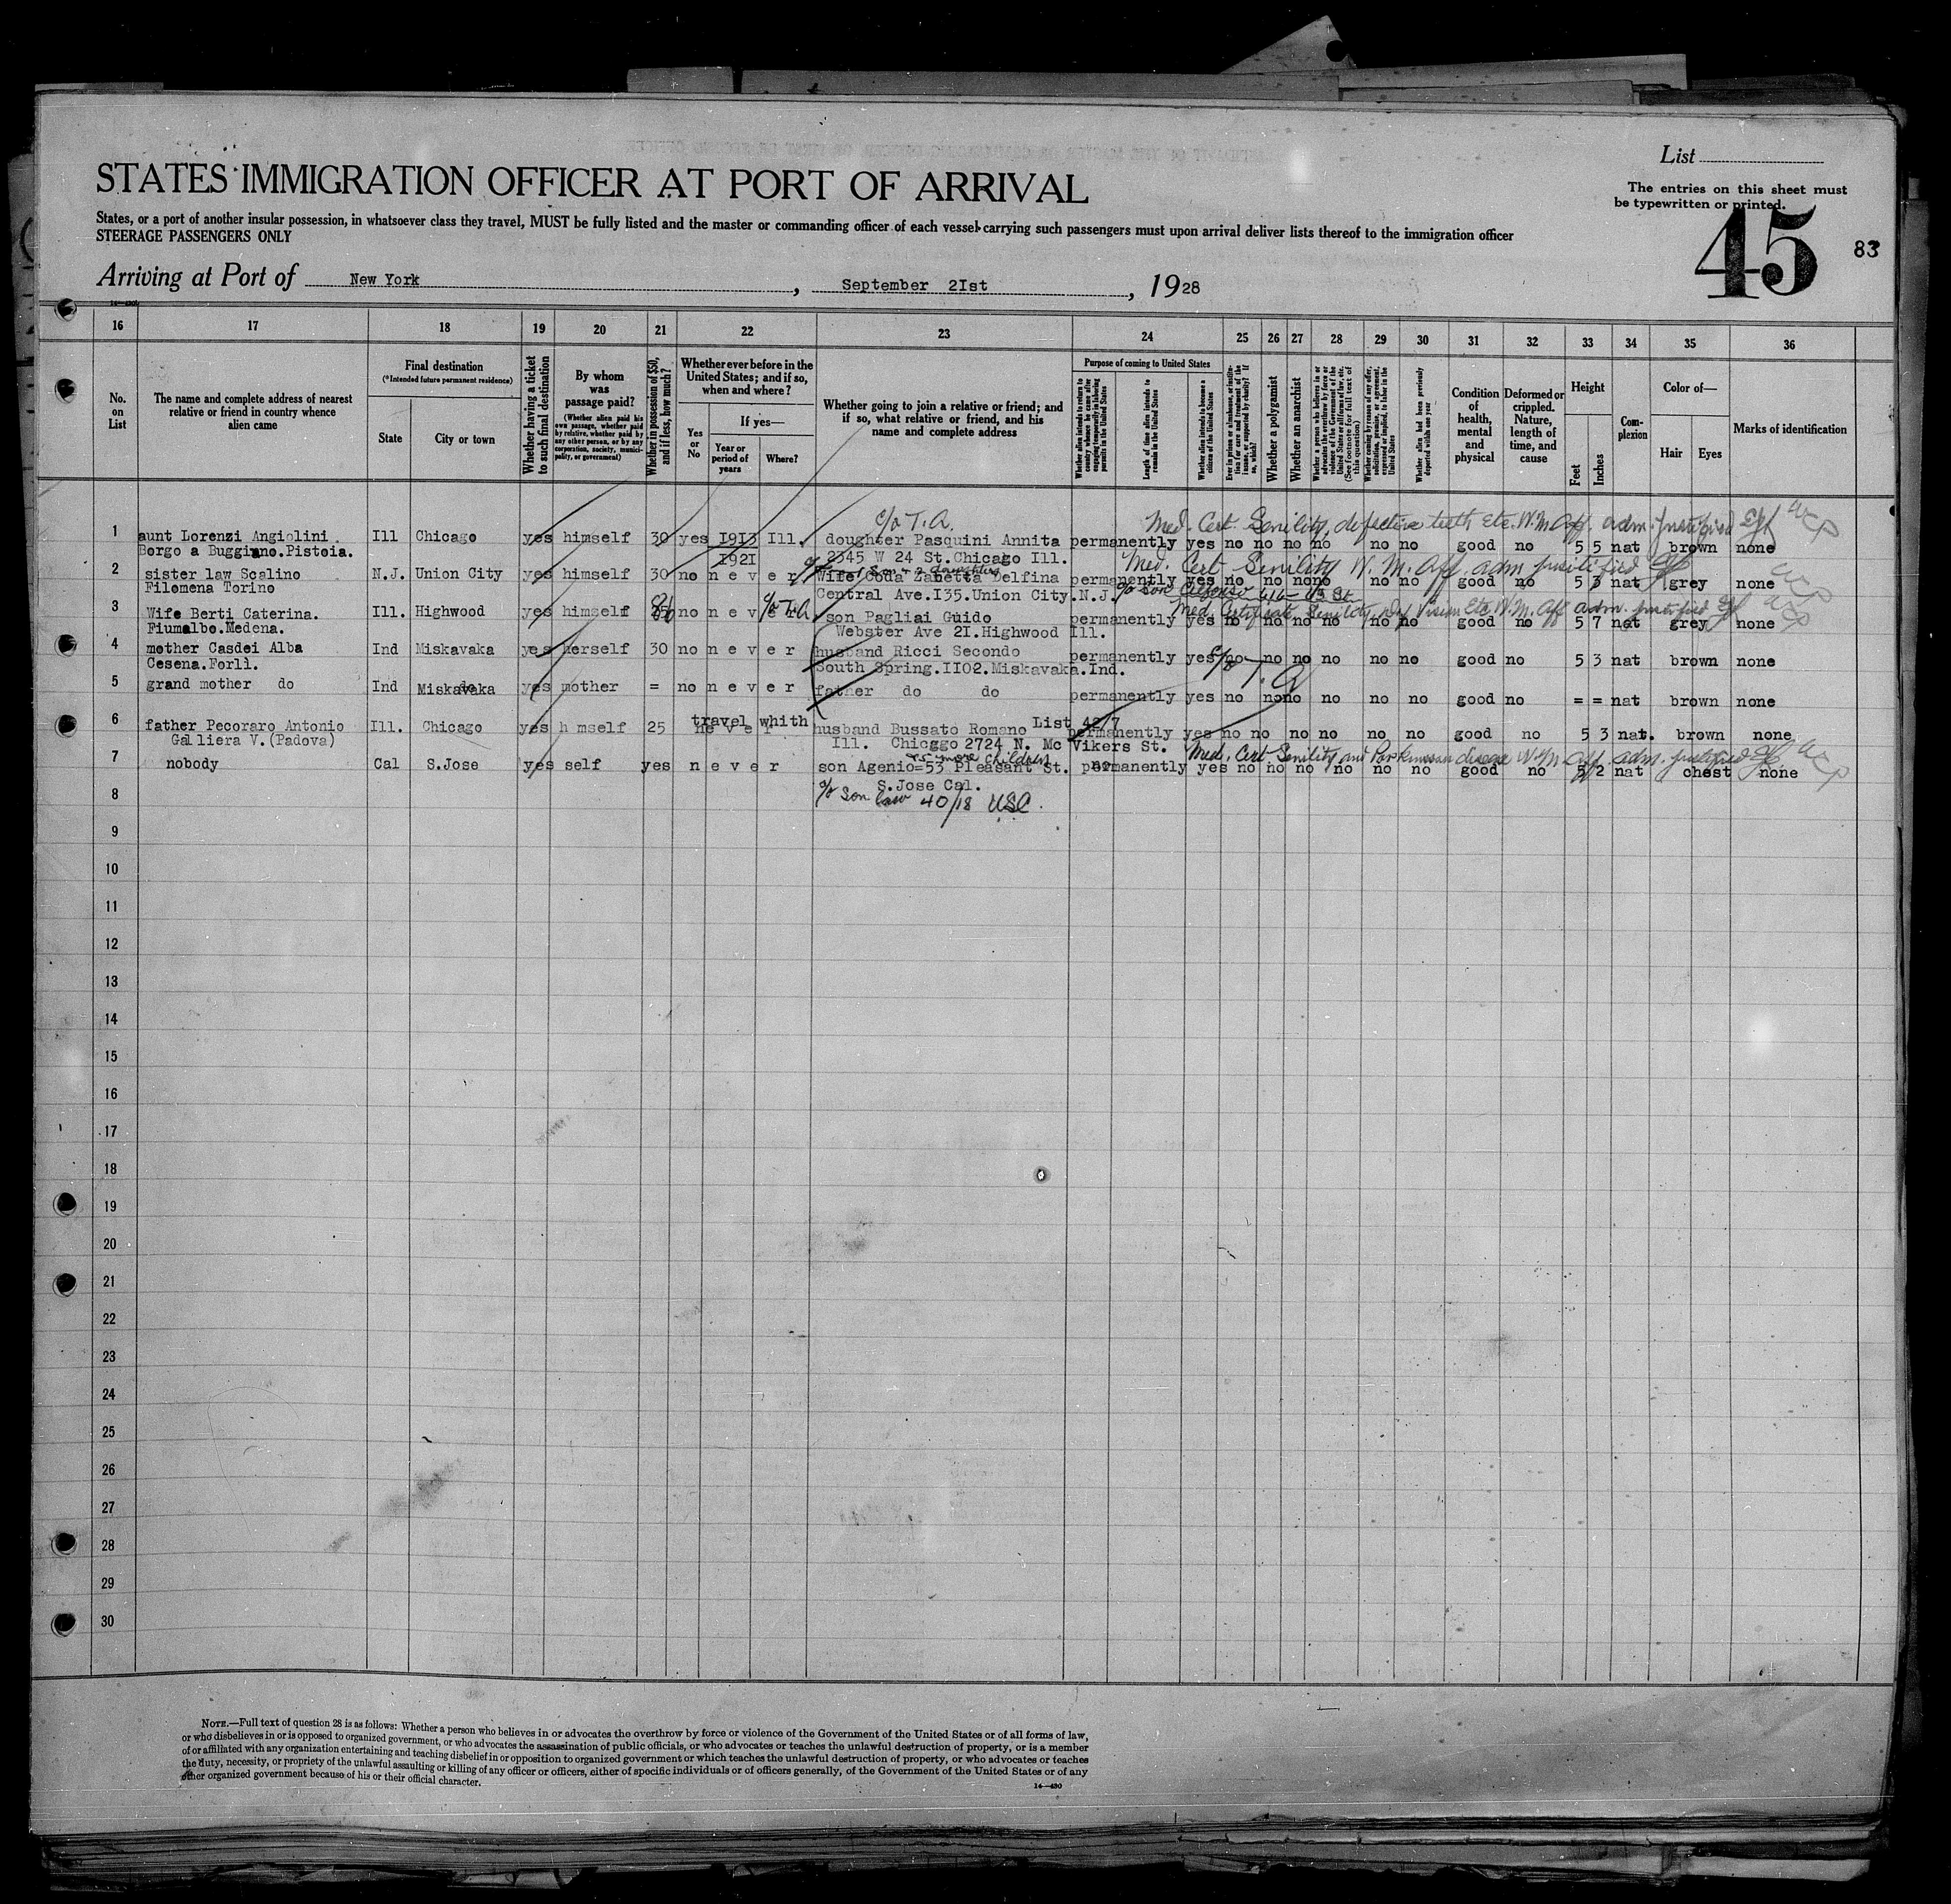 List
The entries on this sheet must
be typewritten or printed.
STATES IMMIGRATION OFFICER AT PORT OF ARRIVAL
States, or a port of another insular possession, in whatsoever class they travel, MUST be fully listed and the master or commanding officer of each vessel carrying such passengers must upon arrival deliver lists thereof to the immigration officer
STEERAGE PASSENGERS ONLY
45
83
Arriving at Port of New York, September 2Ist, 1928
16 17 18 19 20 21 22 23 24 25 26 27 28 29 30 31 32 33 34 35 36
No. on List
The name and complete address of nearest relative or friend in country whence alien came
Final destination
(*Intended future permanent residence)
State
City or town
Whether having a ticket to such final destination
By whom was passage paid?
(Whether alien paid his own passage, whether paid by relative, whether paid by any other person, or by any corporation, society, municipality, or government)
Whether in possession of $50, and if less, how much?
Whether ever before in the United States; and if so, when and where?
Yes or No
If yes—
Year or period of years
Where?
Whether going to join a relative or friend; and if so, what relative or friend, and his name and complete address
Purpose of coming to United States
Length of time alien intends to remain in the United States
Whether alien intends to become a citizen of the United States
Whether a polygamist
Whether an anarchist
Whether alien had been previously deported within one year
Condition of health, mental and physical
Deformed or crippled. Nature, length of time, and cause
Height
Feet
Inches
Complexion
Color of—
Hair
Eyes
Marks of identification
c/o T.A. Med. Cert. Senility, defective teeth etc. W.M. Aff. adm. justified
1 aunt Lorenzi Angiolini Ill Chicago yes himself 30 yes 1913 Ill. doughter Pasquini Annita permanently yes no no no no no no good no 5 5 nat brown none
Borgo a Buggiano.Pistoia. 1921 2345 W 24 St.Chicago Ill.
Med. Cert Senility W. M. Aff. adm justified
2 sister law Scalino N.J. Union City yes himself 30 no never Wife Coda Zabetta Delfina permanently yes no no no no no no good no 5 3 nat grey none
Filomena Torino Central Ave.I35.Union City.N.J.
3 Wife Berti Caterina. Ill. Highwood yes himself no never c/o T.A son Pagliai Guido permanently yes no no no no no no good no 5 7 nat grey none
Fiumalbo.Medena. Webster Ave 2I.Highwood Ill.
4 mother Casdei Alba Ind Miskavaka yes herself 30 no never husband Ricci Secondo permanently yes no no no no no no good no 5 3 nat brown none
Cesena.Forlì. South Spring.II02.Miskavaka.Ind.
5 grand mother do Ind Miskavaka yes mother = no never father do do permanently yes no no no no no no good no = = nat brown none
travel whith List 42/7
6 father Pecoraro Antonio Ill. Chicago yes h mself 25 never husband Bussato Romano permanently yes no no no no no no good no 5 3 nat. brown none
Galliera V.(Padova) Ill. Chicggo 2724 N. Mc Vikers St.
Med. Cert Senility and Parkinson disease W.M. Aff. adm. justified
7 nobody Cal S.Jose yes self yes never son Agenio=53 Pleasant St. permanently yes no no no no no no good no 5 2 nat chest none
S.Jose Cal.
8 c/o Son law 40/18 USC.
9
10
11
12
13
14
15
16
17
18
19
20
21
22
23
24
25
26
27
28
29
30
NOTE.—Full text of question 28 is as follows: Whether a person who believes in or advocates the overthrow by force or violence of the Government of the United States or of all forms of law,
or who disbelieves in or is opposed to organized government, or who advocates the assassination of public officials, or who advocates or teaches the unlawful destruction of property, or is a member
of or affiliated with any organization entertaining and teaching disbelief in or opposition to organized government or which teaches the unlawful destruction of property, or who advocates or teaches
the duty, necessity, or propriety of the unlawful assaulting or killing of any officer or officers, either of specific individuals or of officers generally, of the Government of the United States or of any
other organized government because of his or their official character.
14—430